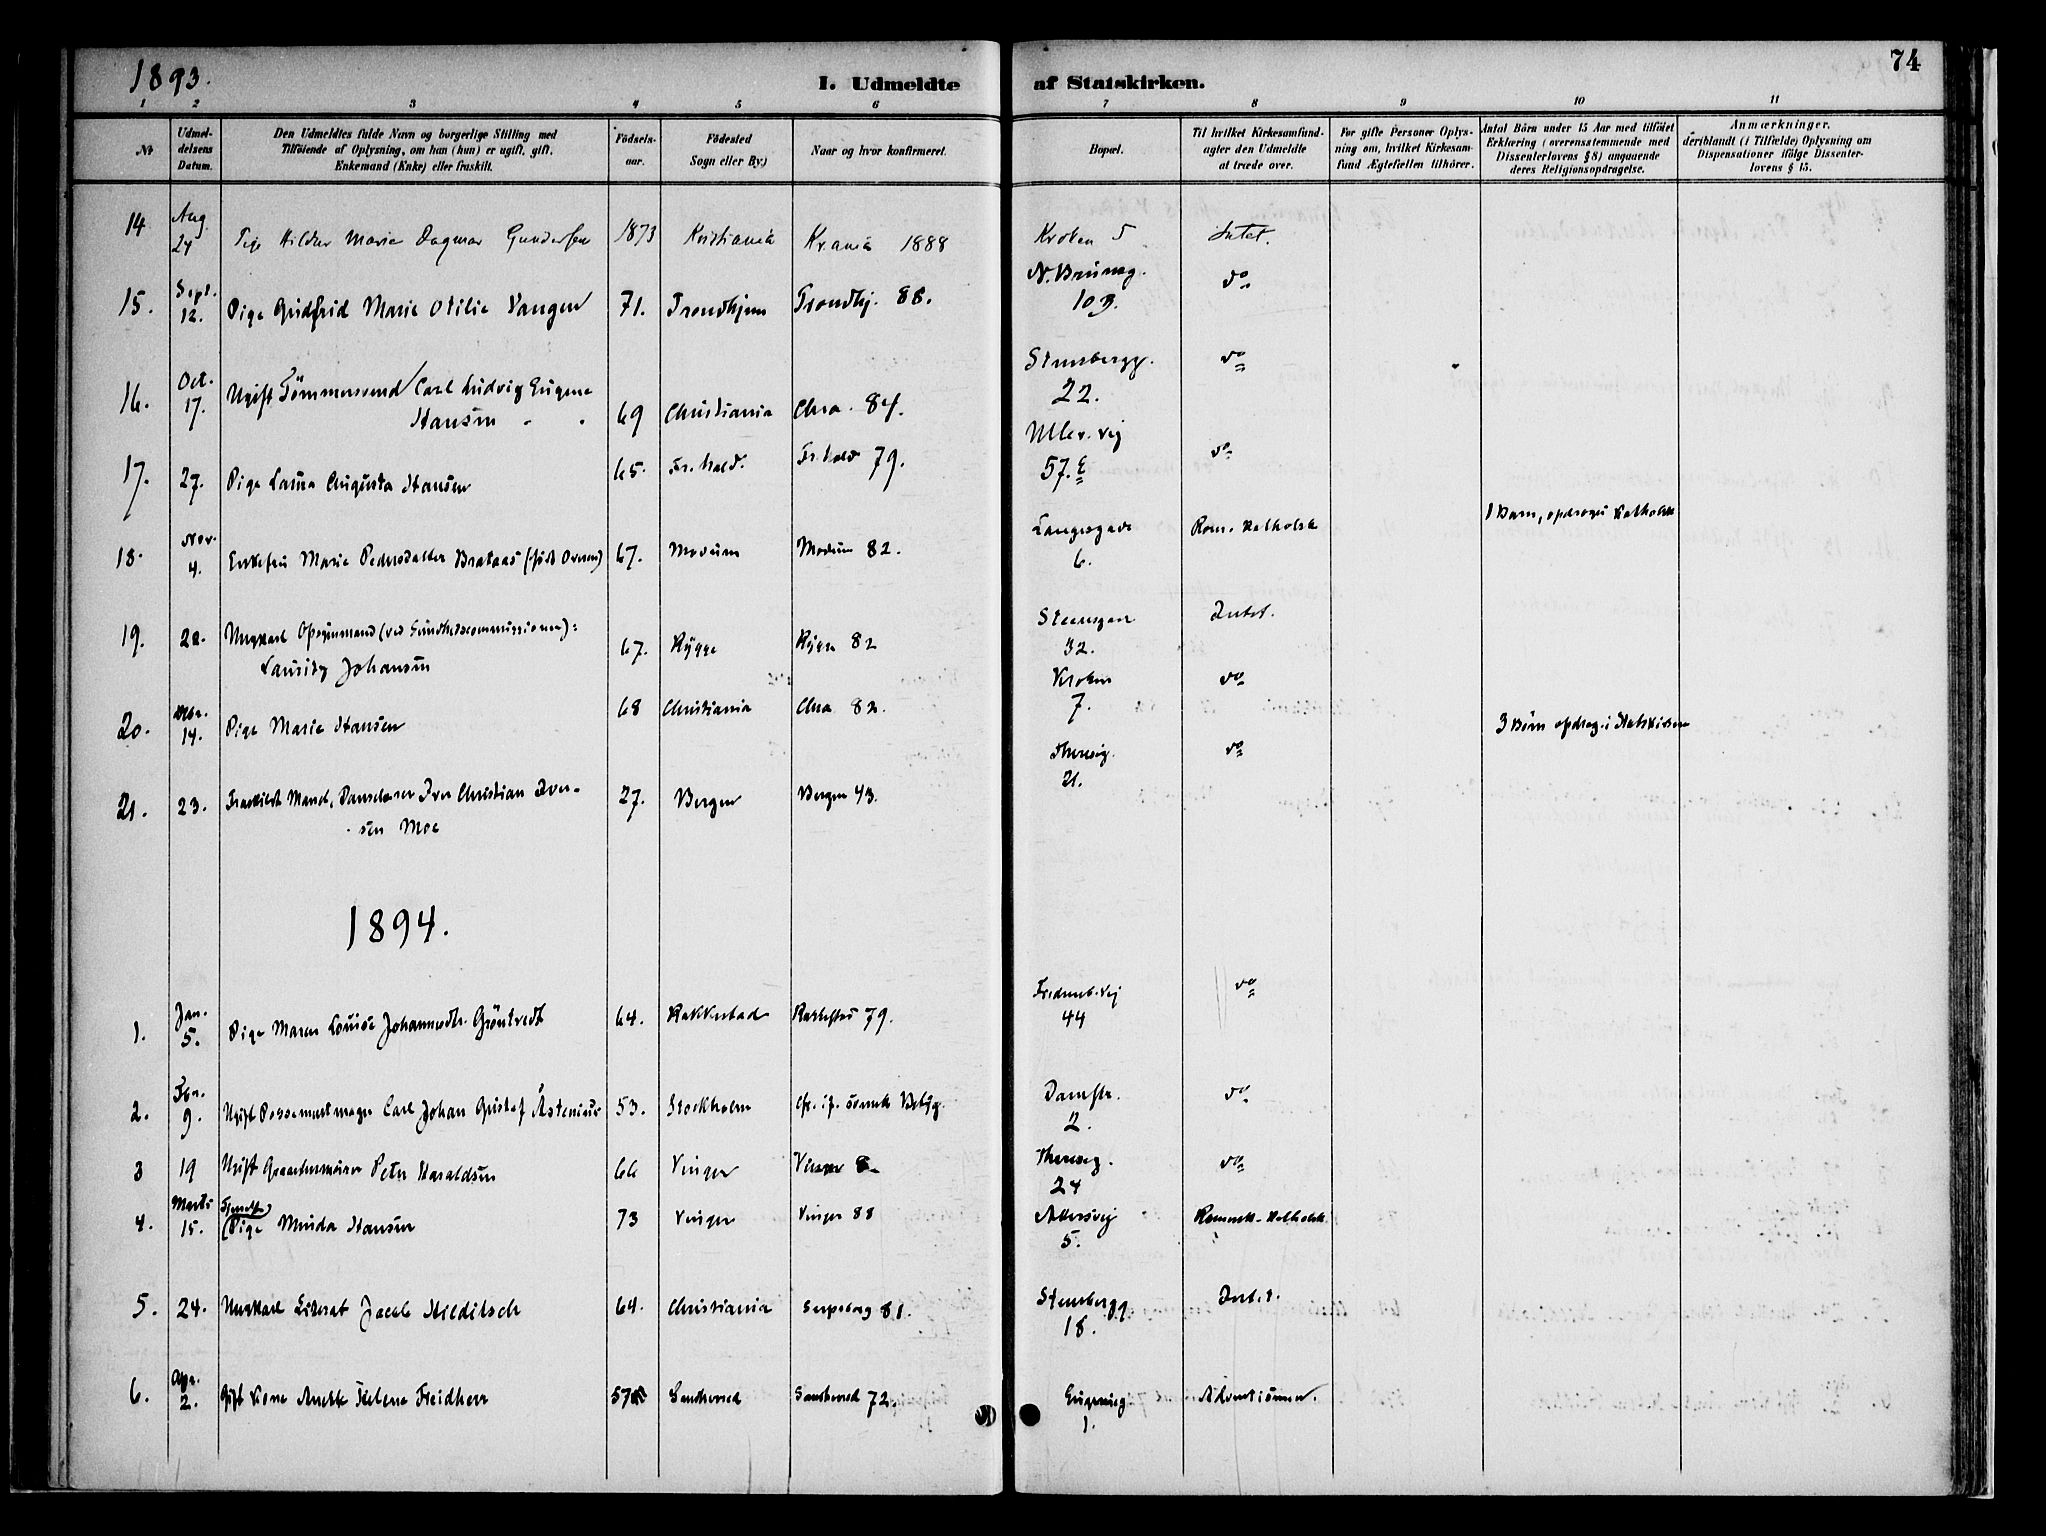 1893.
I. Udmeldte af Statskirken.
74
1 2 3 4 5 6 7 8 9 10 11
No
Udmel-
delsens
Datum.
Den Udmeldtes fulde Navn og borgerlige Stilling med
Tilföiende af Oplysning, om han (hun) er ugift, gift,
Enkemand (Enke) eller fraskilt.
Födsels-
aar.
Födested
Sogn eller By.)
Naar og hvor konfirmeret.
Bopæl.
Til hvilket Kirkesamfund-
agter den Udmeldte
at træde over.
For gifte Personer Oplys-
ning om, hvilket Kirkesam-
fund Ægtefællen tilhörer.
Antal Börn under 15 Aar med tilföiet
Erklæring (overensstemmende med
Dissenterlovens § 8) angaaende
deres Religionsopdragelse.
Anmærkninger,
deriblandt (i Tilfælde) Oplysning om
Dispensationer ifölge Dissenter-
lovens § 15.
14 Aug. 24 Pige Hildur Marie Dagmar Gundersen 1873 Kristiania Kr.ania 1888 Kroken 5 Intet.
15. Sept. 12. Pige Gridfrid Marie Otilie Vangen 71. Trondhjem Trondhj. 88. N. Brunsg. 10 B. do
16. Oct. 17. Ugift Tömmersvend Carl Ludvig Eugene
Hansen 69 Christiania Chra. 84. Stensbergg. 22. do
17. 27. Pige Laura Augusta Hansen 65. Fr.hald. Fr.hald 79. Ullev.vej 57. do
18. Nov. 4. Enkefru Marie Pedersdatter Brataas (født Overen) 67. Modum Modum 82. Langesgade 6. Rom. Katholsk 1 Barn, opdrages Katholsk
19. 28. Ungkarl Opsynsmand (ved Sundhedscommissionen):
Lauritz Johansen 67. Rygge Rygge 82 Steensgad 32. Intet.
20. Dcbr. 14. Pige Marie Hansen 68 Christiania Chra 82. Kroken 7. do
21. 23. Fraskilt Mand, Danselærer Iver Christian Iver-
sen Moe 27. Bergen Bergen 43. Thereseg. 21. do 3 Børn opdrag. i Statskirken
1894.
1. Jan. 5. Pige Maren Louise Johannesdtr. Gröntvedt 64. Rakkestad Rakkestad 79. Fredensb.vej 44 do
2. Febr. 9. Ugift Possementmager Carl Johan Gustaf Astenius 53. Stockholm Damstr. 2. do
3 19 Ugift Peter Haraldsen 66 Vinger Vinger Thereseg. 24 do
4. Marts 15. Pige Minda Hansen 73 Vinger Vinger 88 Akersvej 5. Romersk-Katholsk
5. 24. Ungkarl Literat Jacob Hilditsch 64. Christiania Sarpsborg 81. Stensbergg 18. Intet.
6. Apr. 2. Gift Kone Anette Helene Freidherr 57 Sandherred Sandherred 72. Eugenieg 1. Adventismen.